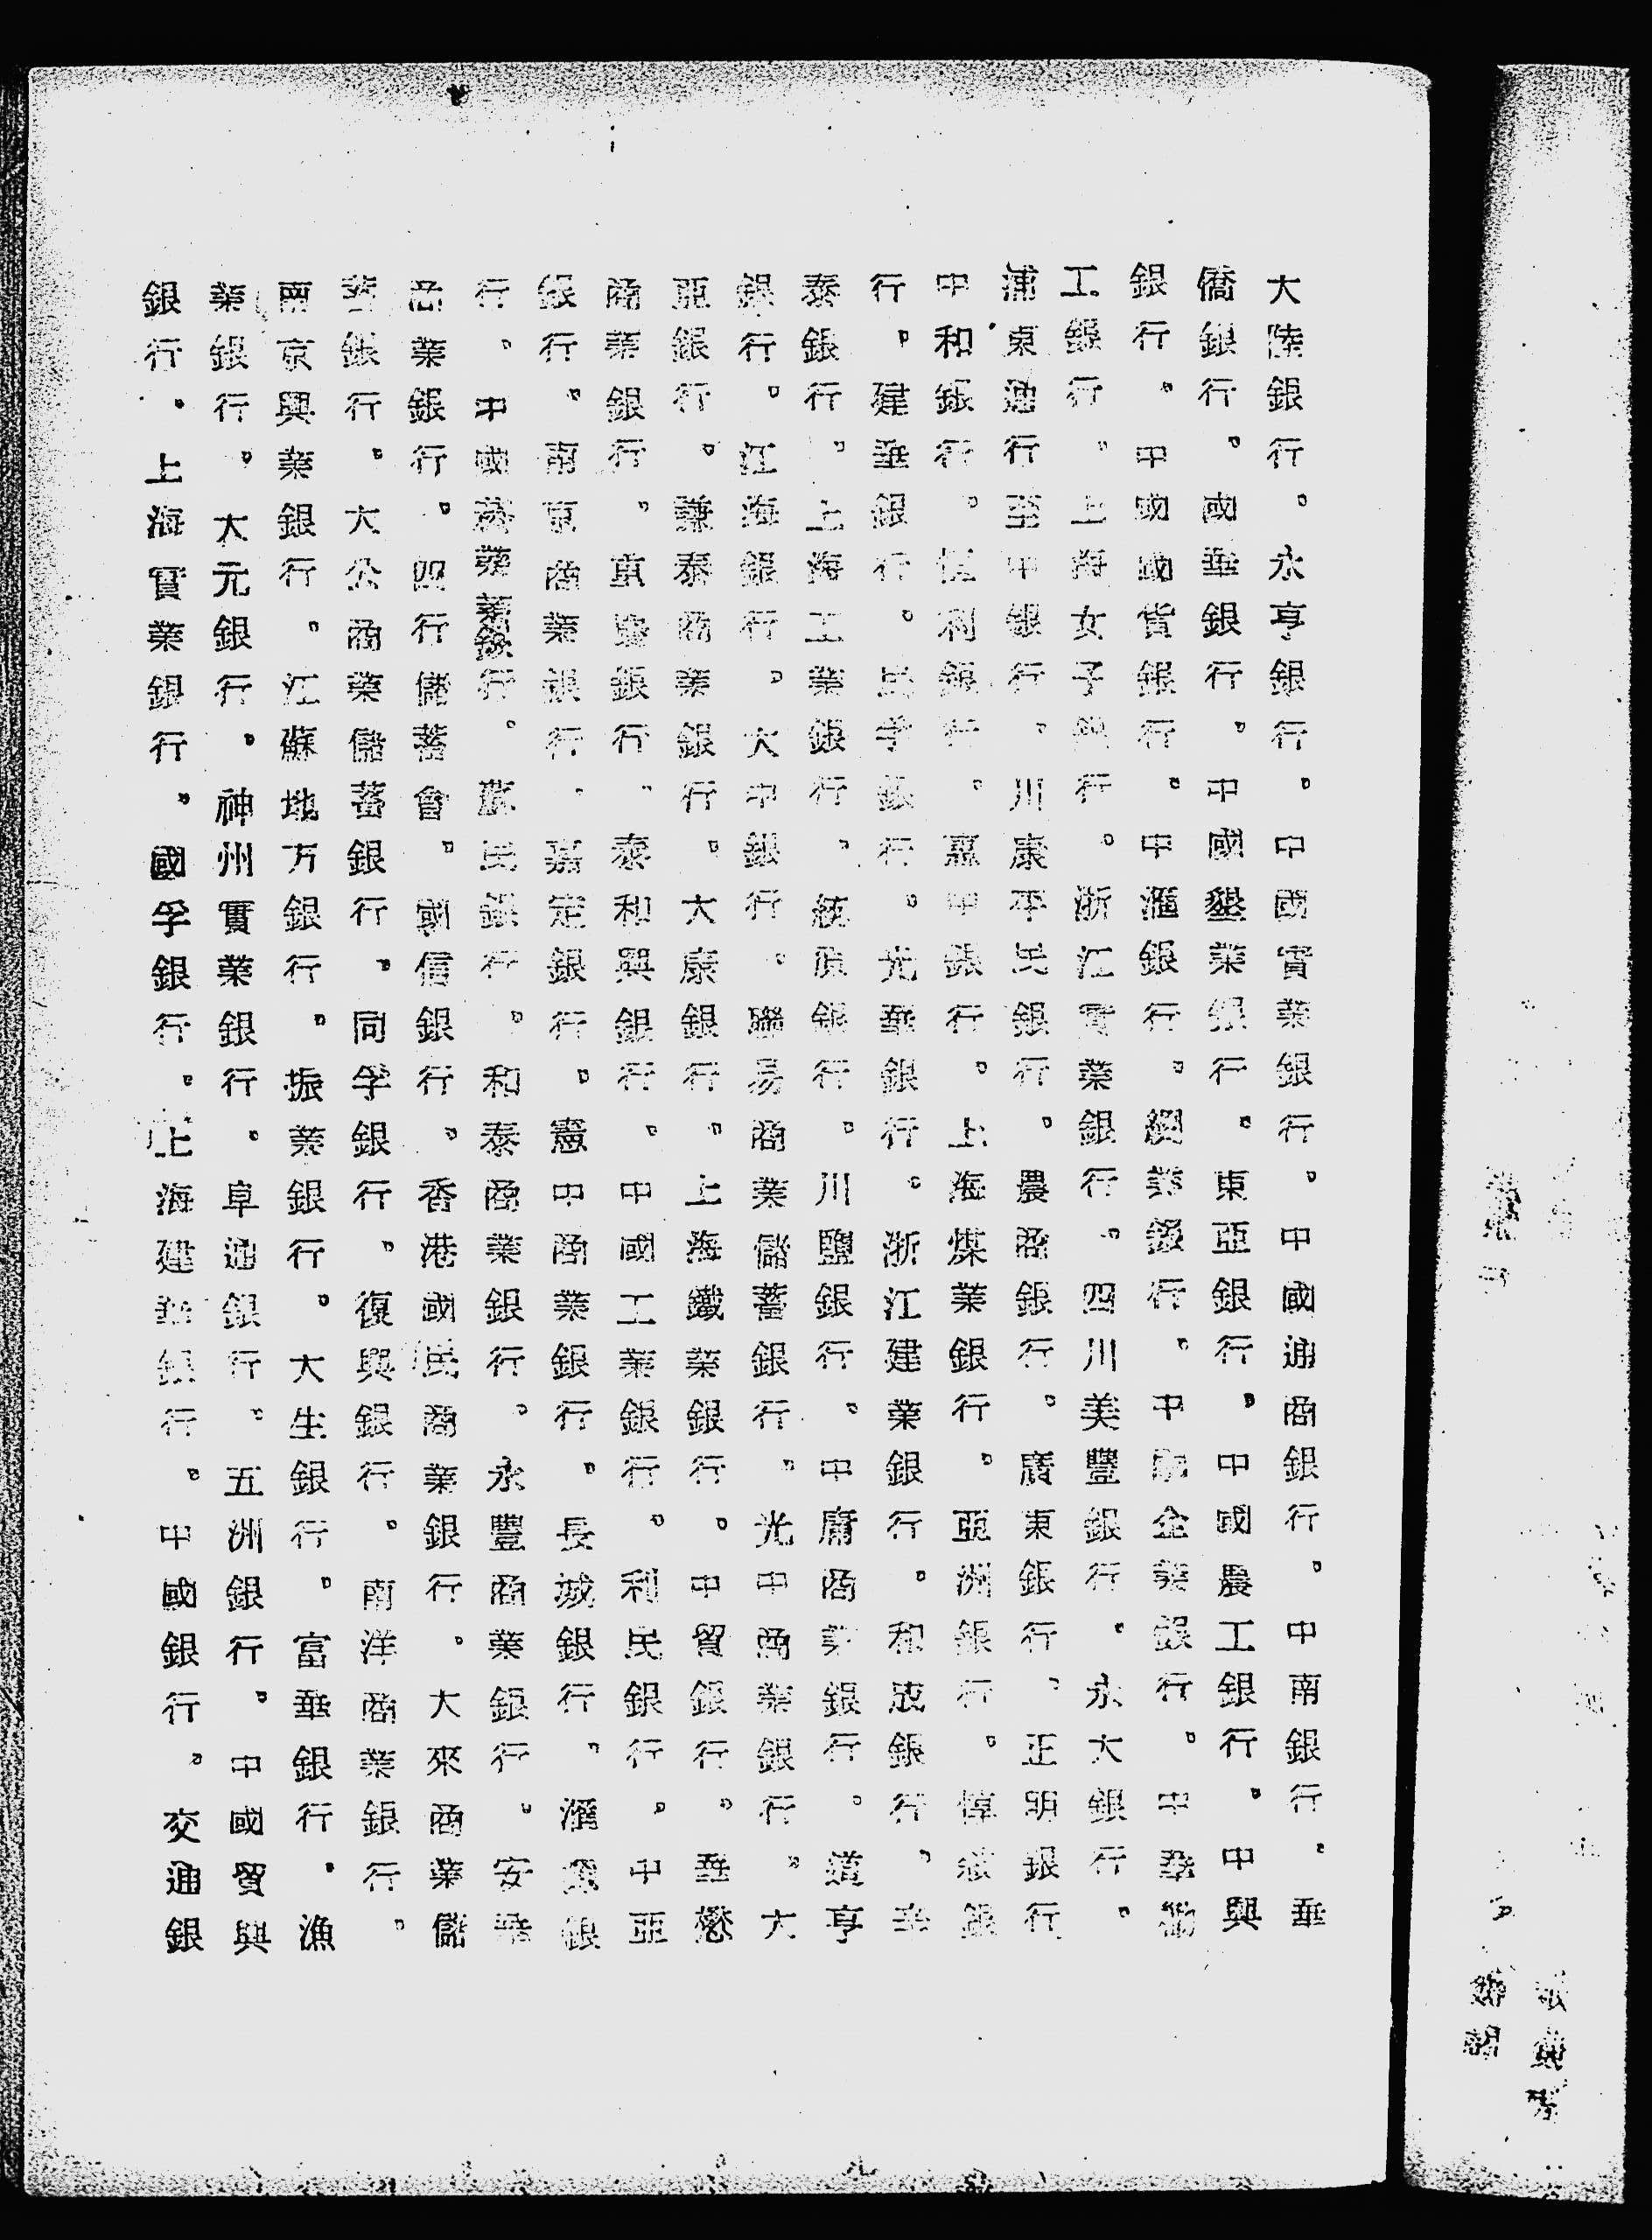 大陸銀行。永亨銀行。中國實業銀行。中國通商銀行。中南銀行。華
僑銀行。國華銀行。中國墾業銀行。東亞銀行。中國農工銀行。中興
銀行。中國國貨銀行。中滙銀行。綢業銀行。中國企業銀行。中華勸
工銀行。上海女子銀行。浙江實業銀行。四川美豐銀行。永大銀行。
浦東通行至中銀行。川康平民銀行。農商銀行。廣東銀行。正明銀行
中和銀行。恆利銀行。嘉華銀行。上海煤業銀行。亞洲銀行。惇敘銀
行。建華銀行。民孚銀行。光華銀行。浙江建業銀行。和成銀行。華
泰銀行。上海工業銀行。統原銀行。川鹽銀行。中庸商業銀行。道亨
銀行。江海銀行。大中銀行。聯易商業儲蓄銀行。光中商業銀行。大
亞銀行。謙泰商業銀行。大康銀行。上海鐵業銀行。中貿銀行。華懋
商業銀行。重慶銀行。泰和興銀行。中國工業銀行。利民銀行。中亞
銀行。南京商業銀行。嘉定銀行。憲中商業銀行。長城銀行。滙源銀
行。中國 行。 民銀行。和泰商業銀行。永豐商業銀行。安華
商業銀行。四行儲蓄會。國信銀行。香港國民商業銀行。大來商業儲
蓄銀行。大公商業儲蓄銀行。同孚銀行。復興銀行。南洋商業銀行。
南京興業銀行。江蘇地方銀行。振業銀行。大生銀行。富華銀行。漁
業銀行。大元銀行。神州實業銀行。阜通銀行。五洲銀行。中國貿興
銀行。上海實業銀行。國孚銀行。上海建華銀行。中國銀行。交通銀